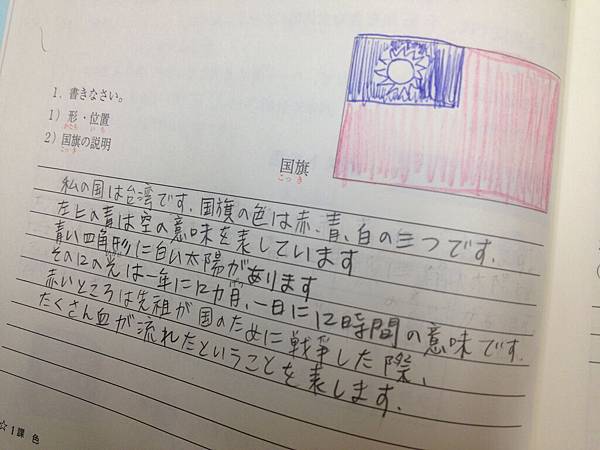 1. 書きなさい。
1) 形・位置
かたち いち
2) 国旗の説明
こっき
国旗
こっき
私の国は台湾です。国旗の色は赤、青、白の三つです。
左上の青は空の意味を表しています
青い四角形に白い太陽があります
その12の光は一年に12カ月、一日に12時間の意味です。
赤いところは先祖が国のために戦争した際、
たくさん血が流れたということを表します。
☆1課 色